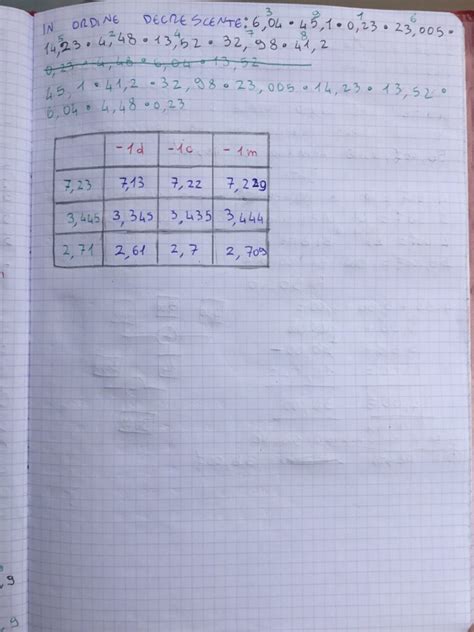 IN ORDINE DECRESCENTE: 6,04 • 45,1 • 0,23 • 23,005 •
14,23 • 4,48 • 13,52 • 32,98 • 41,2
0,23 • 4,48 • 6,04 • 13,52
45,1 • 41,2 • 32,98 • 23,005 • 14,23 • 13,52 •
6,04 • 4,48 • 0,23
-1d -1c -1m
7,23 7,13 7,22 7,229
3,445 3,345 3,435 3,444
2,71 2,61 2,7 2,709
,9
,9